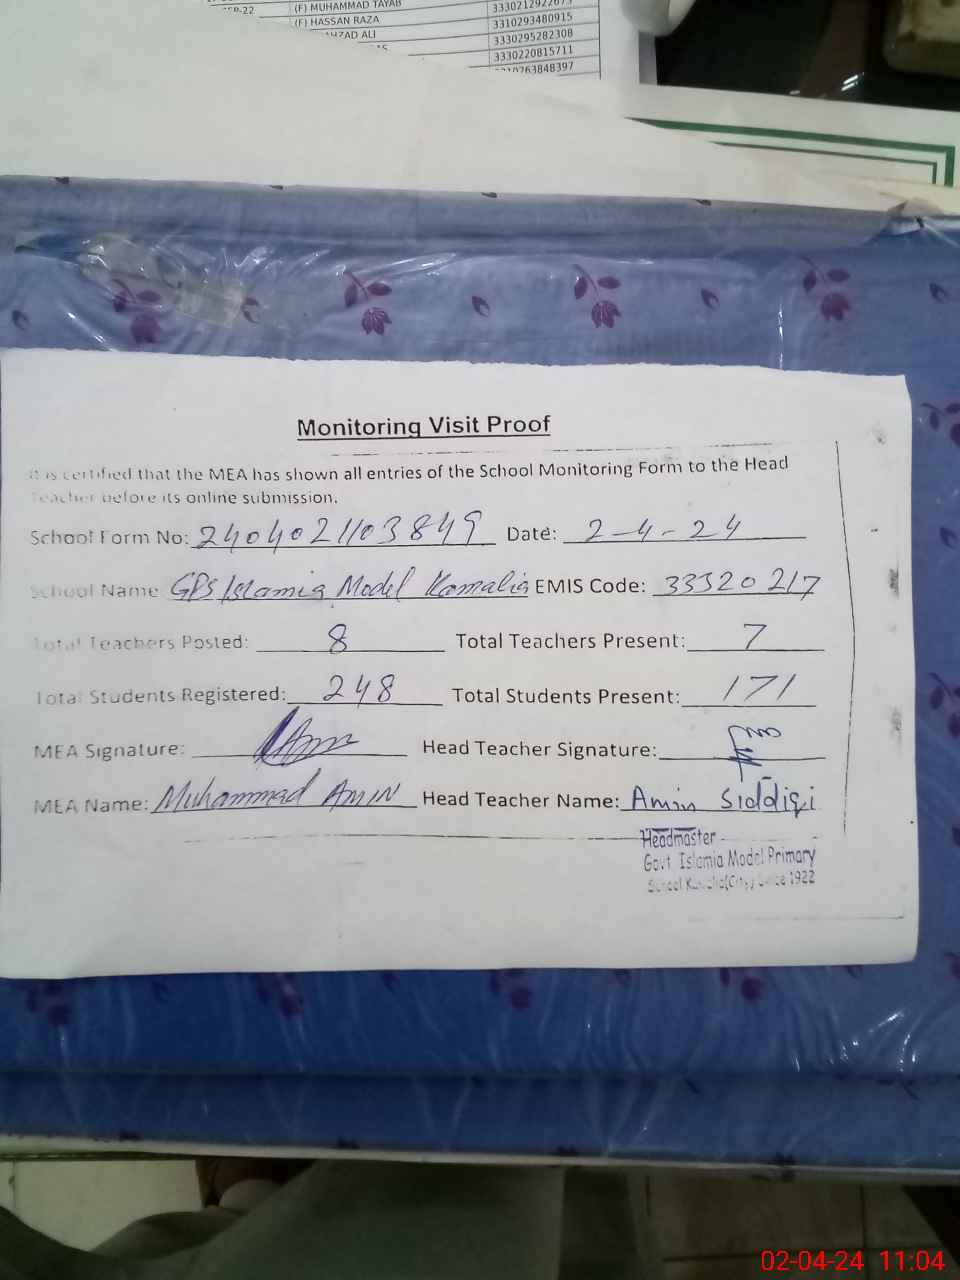 22
(F) MUHAMMAD TAYAB
(F) HASSAN RAZA 3310293480915
ALI 3330295282308
3330220815711
Monitoring Visit Proof
It is certified that the MEA has shown all entries of the School Monitoring Form to the Head
Teacher before its online submission.
School Form No: 240402103849 Date: 2-4-24
School Name GPS Islamia Model Kamalia EMIS Code: 33320217
Total Teachers Posted: 8 Total Teachers Present: 7
Total Students Registered: 248 Total Students Present: 171
MEA Signature: Head Teacher Signature:
MEA Name: Muhammad AMIN Head Teacher Name: Amin Siddiqi
Headmaster
Govt Islamia Model Primary
School (City) Since 1922
02-04-24 11:04